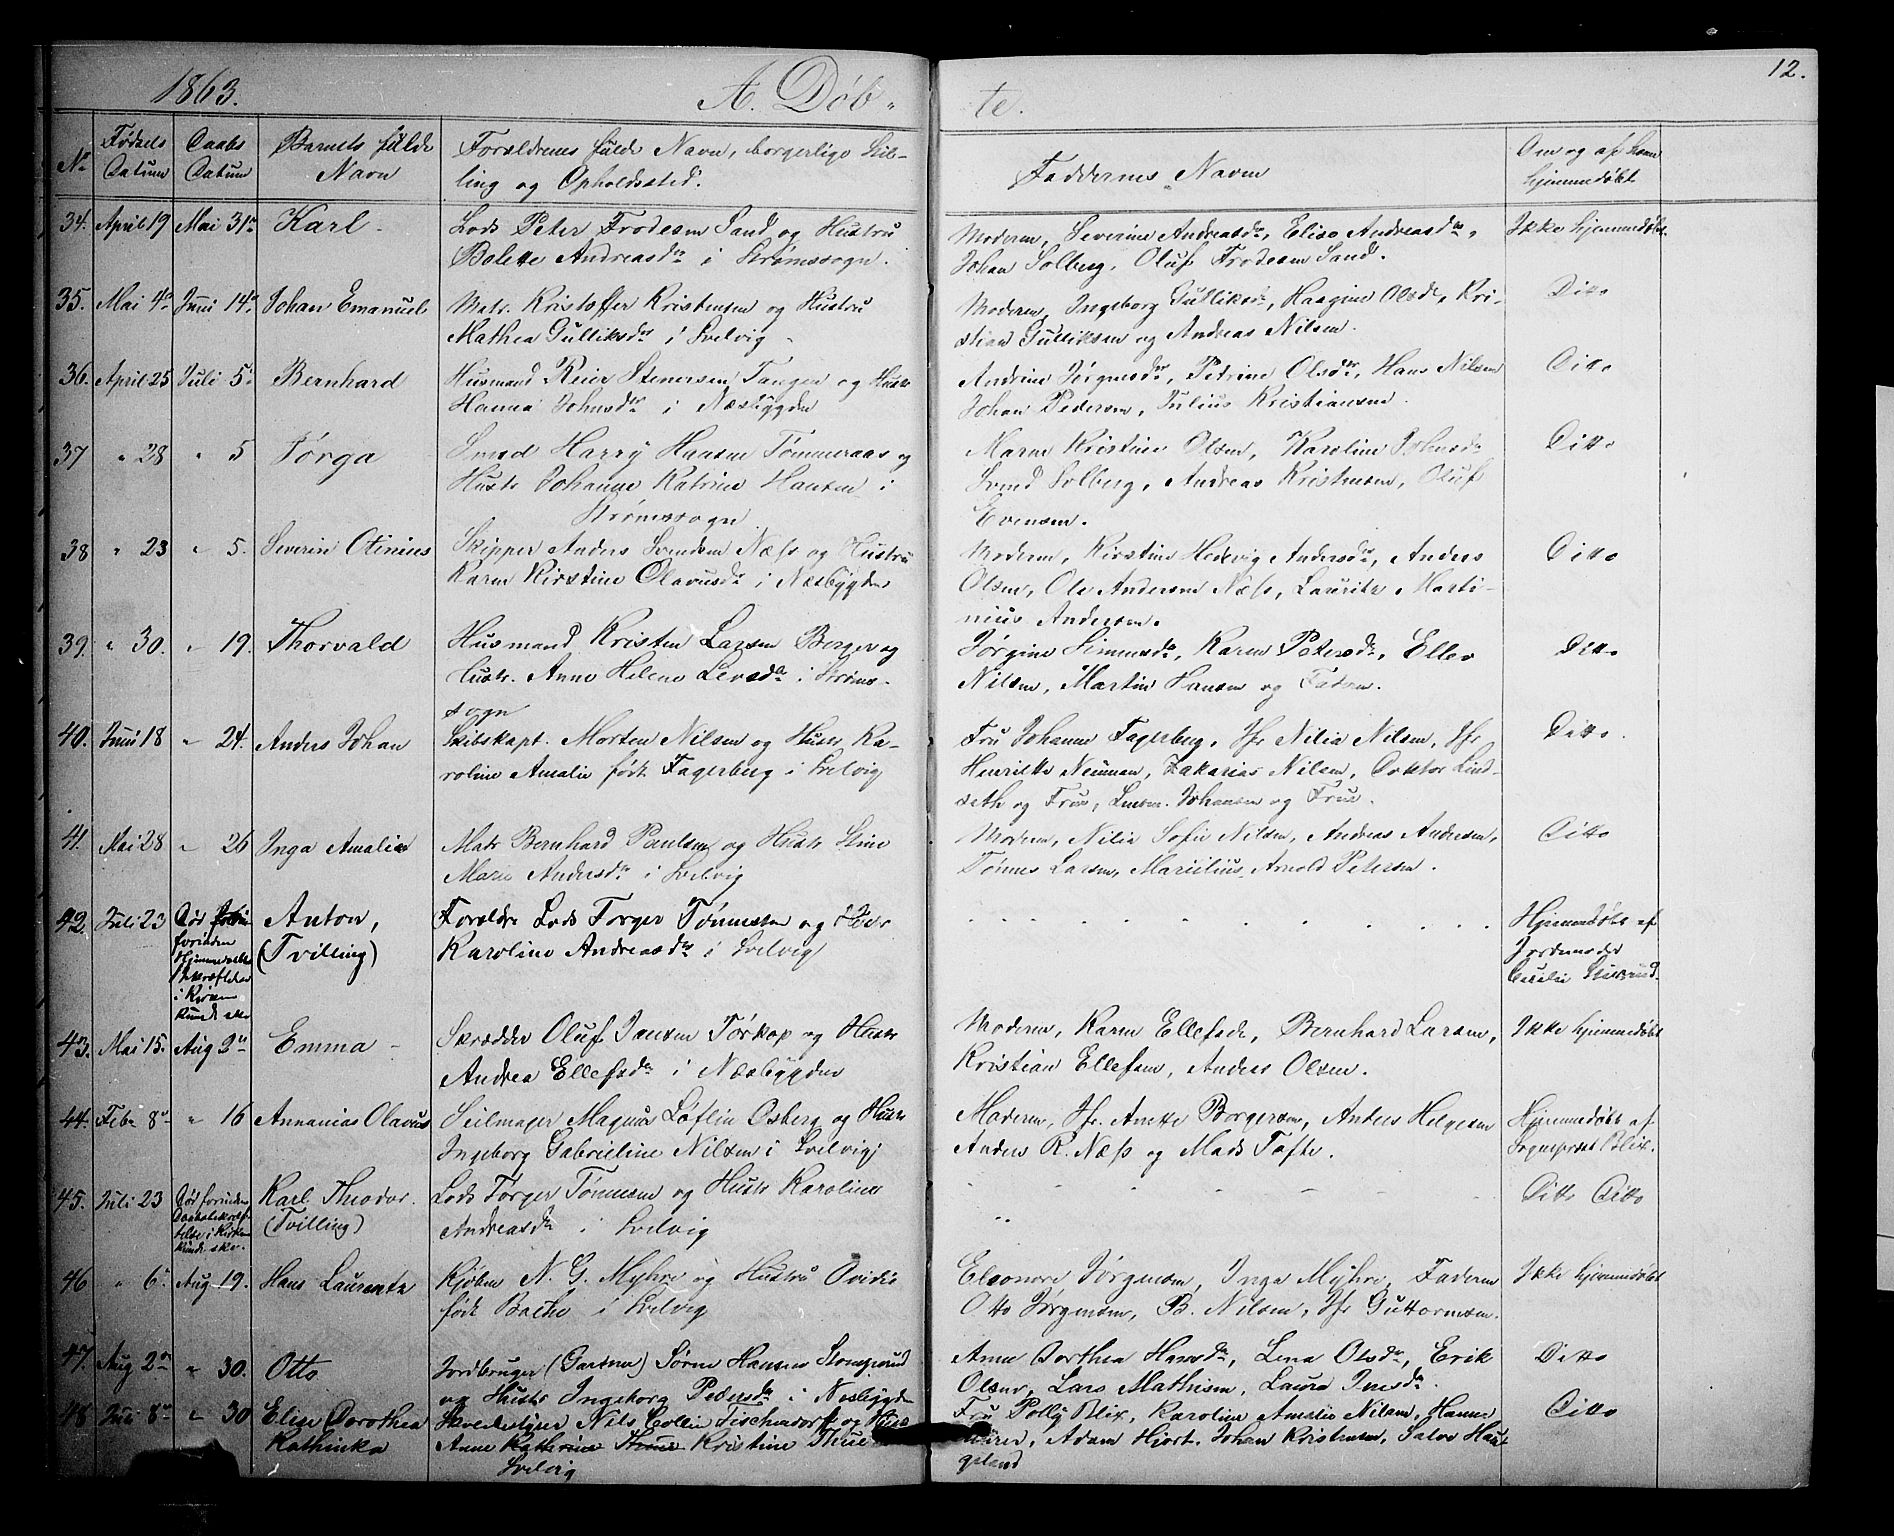 12.
1863. A. Døb- te.
No Fødsels Datum Daabs Datum Barnets fulde Navn Forældrenes fulde Navn, borgerlige Stil- ling og Opholdssted. Faddernes Navne Om og af hvem hjemmedøbt
34. April 19 Mai 31te Karl - Lods Peter Frodesen Sand og Hustru Moderen, Severine Andreasdr, Elise Andreasdr, Ikke hjemmedøbt
Bolette Andreasdr i Strømssogn. Johan Solberg, Oluf Frodesen Sand.
35. Mai 4de Juni 14de Johan Emanuel Matr. Kristoffer Kristensen og Hustru Moderen, Ingeborg Gulliksdr, Haagine Olsdr, Kri- Ditto
Mathea Gulliksdr i Svelvig - stian Gulliksen og Andreas Nilsen.
36. April 25 Juli 5te Bernhard Husmand Reier Stenersen Tangen og Hustr Andrine Jörgensdr, Petrine Olsdr, Hans Nilsen Ditto
Hanna Johnsdr i Næsbygden Johan Pedersen, Julius Kristiansen.
37 " 28 " 5 Törga Smed Harry Hansen Tømmeraas og Maren Kristine Olsen, Karoline Johnsdr Ditto
Hustr Johanne Katrine Hansen i Svend Solberg, Andreas Kristensen, Oluf
Strømssogn Evensen.
38 " 23 " 5. Severin Otinius Skipper Anders Svendsen Næss og Hustru Moderen, Kirstine Hedevig Andersdr, Anders Ditto
Karen Kirstine Olavusdr i Næsbygden Olsen, Ole Andersen Næss, Lauritz Marti-
nius Andersen.
39. " 30. " 19. Thorvald Husmand Kristen Larsen Berger og Jørgine Simensdr, Karen Petersdr, Ellev Ditto
Hustr. Anne Helene Levsdr i Strøms- Nilsen, Martin Hansen og Faderen.
sogn
40. Juni 18 " 24. Anders Johan Skibskapt. Morten Nilsen og Hustr Ka- Fru Johanne Fagerberg, Jfr Nilia Nilsen, Jfr Ditto.
roline Amalie født Fagerberg i Svelvig Henriette Neuman, Zakarias Nilsen, Doktor Lind-
seth og Frue, Johansen og Frue.
41. Mai 28 " 26 Inga Amalia Matr Bernhard Paulsen og Hustr Stine Moderen, Nilia Sofie Nilsen, Andreas Andersen, Ditto
Marie Andersdr i Svelvig Tønnes Larsen, Marilius Arnold Petersen.
42. Juli 23 Død forinden Hjemmedaabs i Kirken kunde ske Anton, (Tvilling) Forældre Lods Torger Tønnesen og Hustr Hjemmedøbt af
Karoline Andreasdr i Svelvig Jordemoder Cecilie
43. Mai 15. Aug 2den Emma - Skrædder Oluf Jansen Tørkop og Hustr Moderen, Karen Ellefsdr, Bernhard Larsen, Ikke hjemmedøbt
Andrea Ellefsdr i Næsbygden Kristian Ellefsen, Anders Olsen.
44. Febr 8de " 16 Annanias Olavus Seilmager Magnus Løflin Osberg og Hustr Moderen, Jfr. Anette Borgersen, Anders Helgesen Hjemmedøbt af
Ingeborg Gabrieline Nilsen i Svelvig Anders R. Næss og Mads Tofte. Sogneprest Blix.
45. Juli 23 Død forinden Daabsbekræf- telse i Kirken kunde ske. Karl Theodor. (Tvilling) Lods Torger Tønnesen og Hustr Karoline Ditto Ditto
Andreasdr i Svelvig
46 " 6te Aug 19. Hans Laurentz Kjøbm N. G. Myhre og Hustru Ovidia Eleonore Jörgensen, Inga Myhre, Faderen Ikke hjemmedøbt
født Bache i Svelvig Otto Jørgensen, B. Nilsen, Jfr Guttormsen.
47. Aug 2den " 30. Otto Jordbruger (Gartner) Sören Hansen Anne Dorthea Hansdr, Lena Olsdr, Erik Ditto
og Hustr Ingeborg Pedersdr i Næsbygden Olsen, Lars Mathisen, Laura Jensdr.
48 Juni 8de " 30 Elise Dorothea Nils Collin Tischendorf og Hustr Fru Polly Blix, Karoline Amalie Nilsen, Hanna Ditto
Kathinka Anne Kathrine Kristine Thue Adam Hjort, Johan Kristensen, Salve Hau-
Svelvig geland